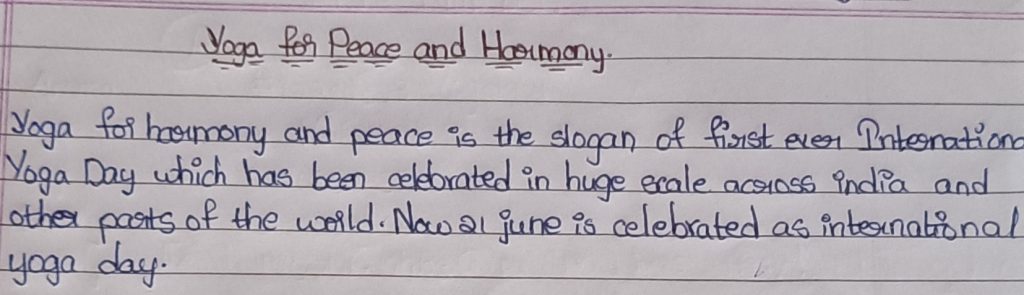 Yoga for Peace and Harmony.
Yoga for harmony and peace is the slogan of first ever Internationa
Yoga Day which has been celebrated in huge scale across india and
other parts of the world. Now 21 june is celebrated as international
yoga day.